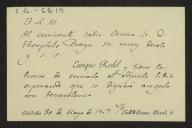 B. L. M.
Al eminente
Theophilo Braga su muy devoto
y s. s.
Enrique Redel y tiene la
honra de enviarle el adjunto libro
esperando que se dignará acogerlo
con benevolencia.
Córdoba 30 de Mayo de 1907